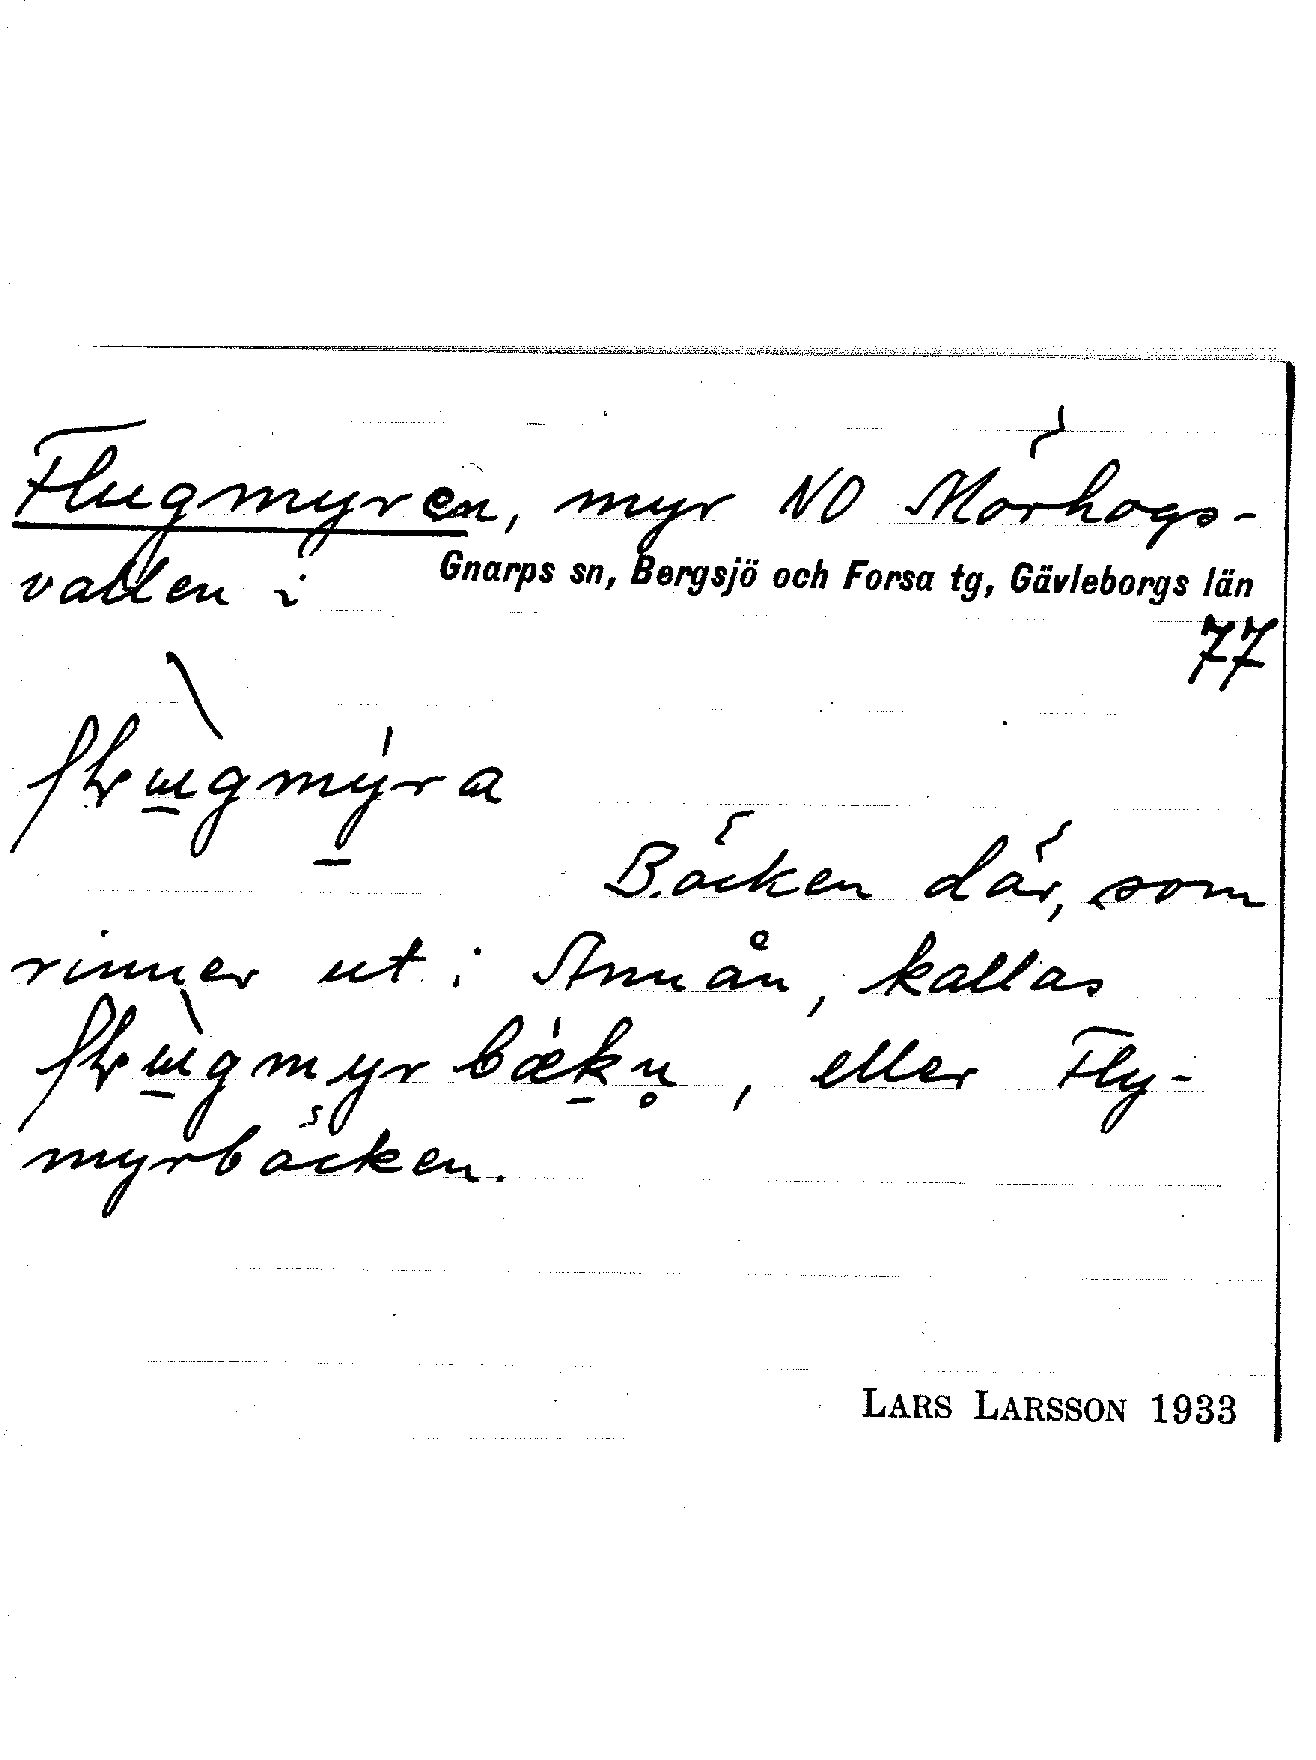 Flugmyren, myr NO Mörhogs-
vallen i Gnarps sn, Bergsjö och Forsa tg, Gävleborgs län
77
Bäcken där, som
rinner ut i Annån, kallas
, eller Fly-
myrbäcken.
LARS LARSSON 1933